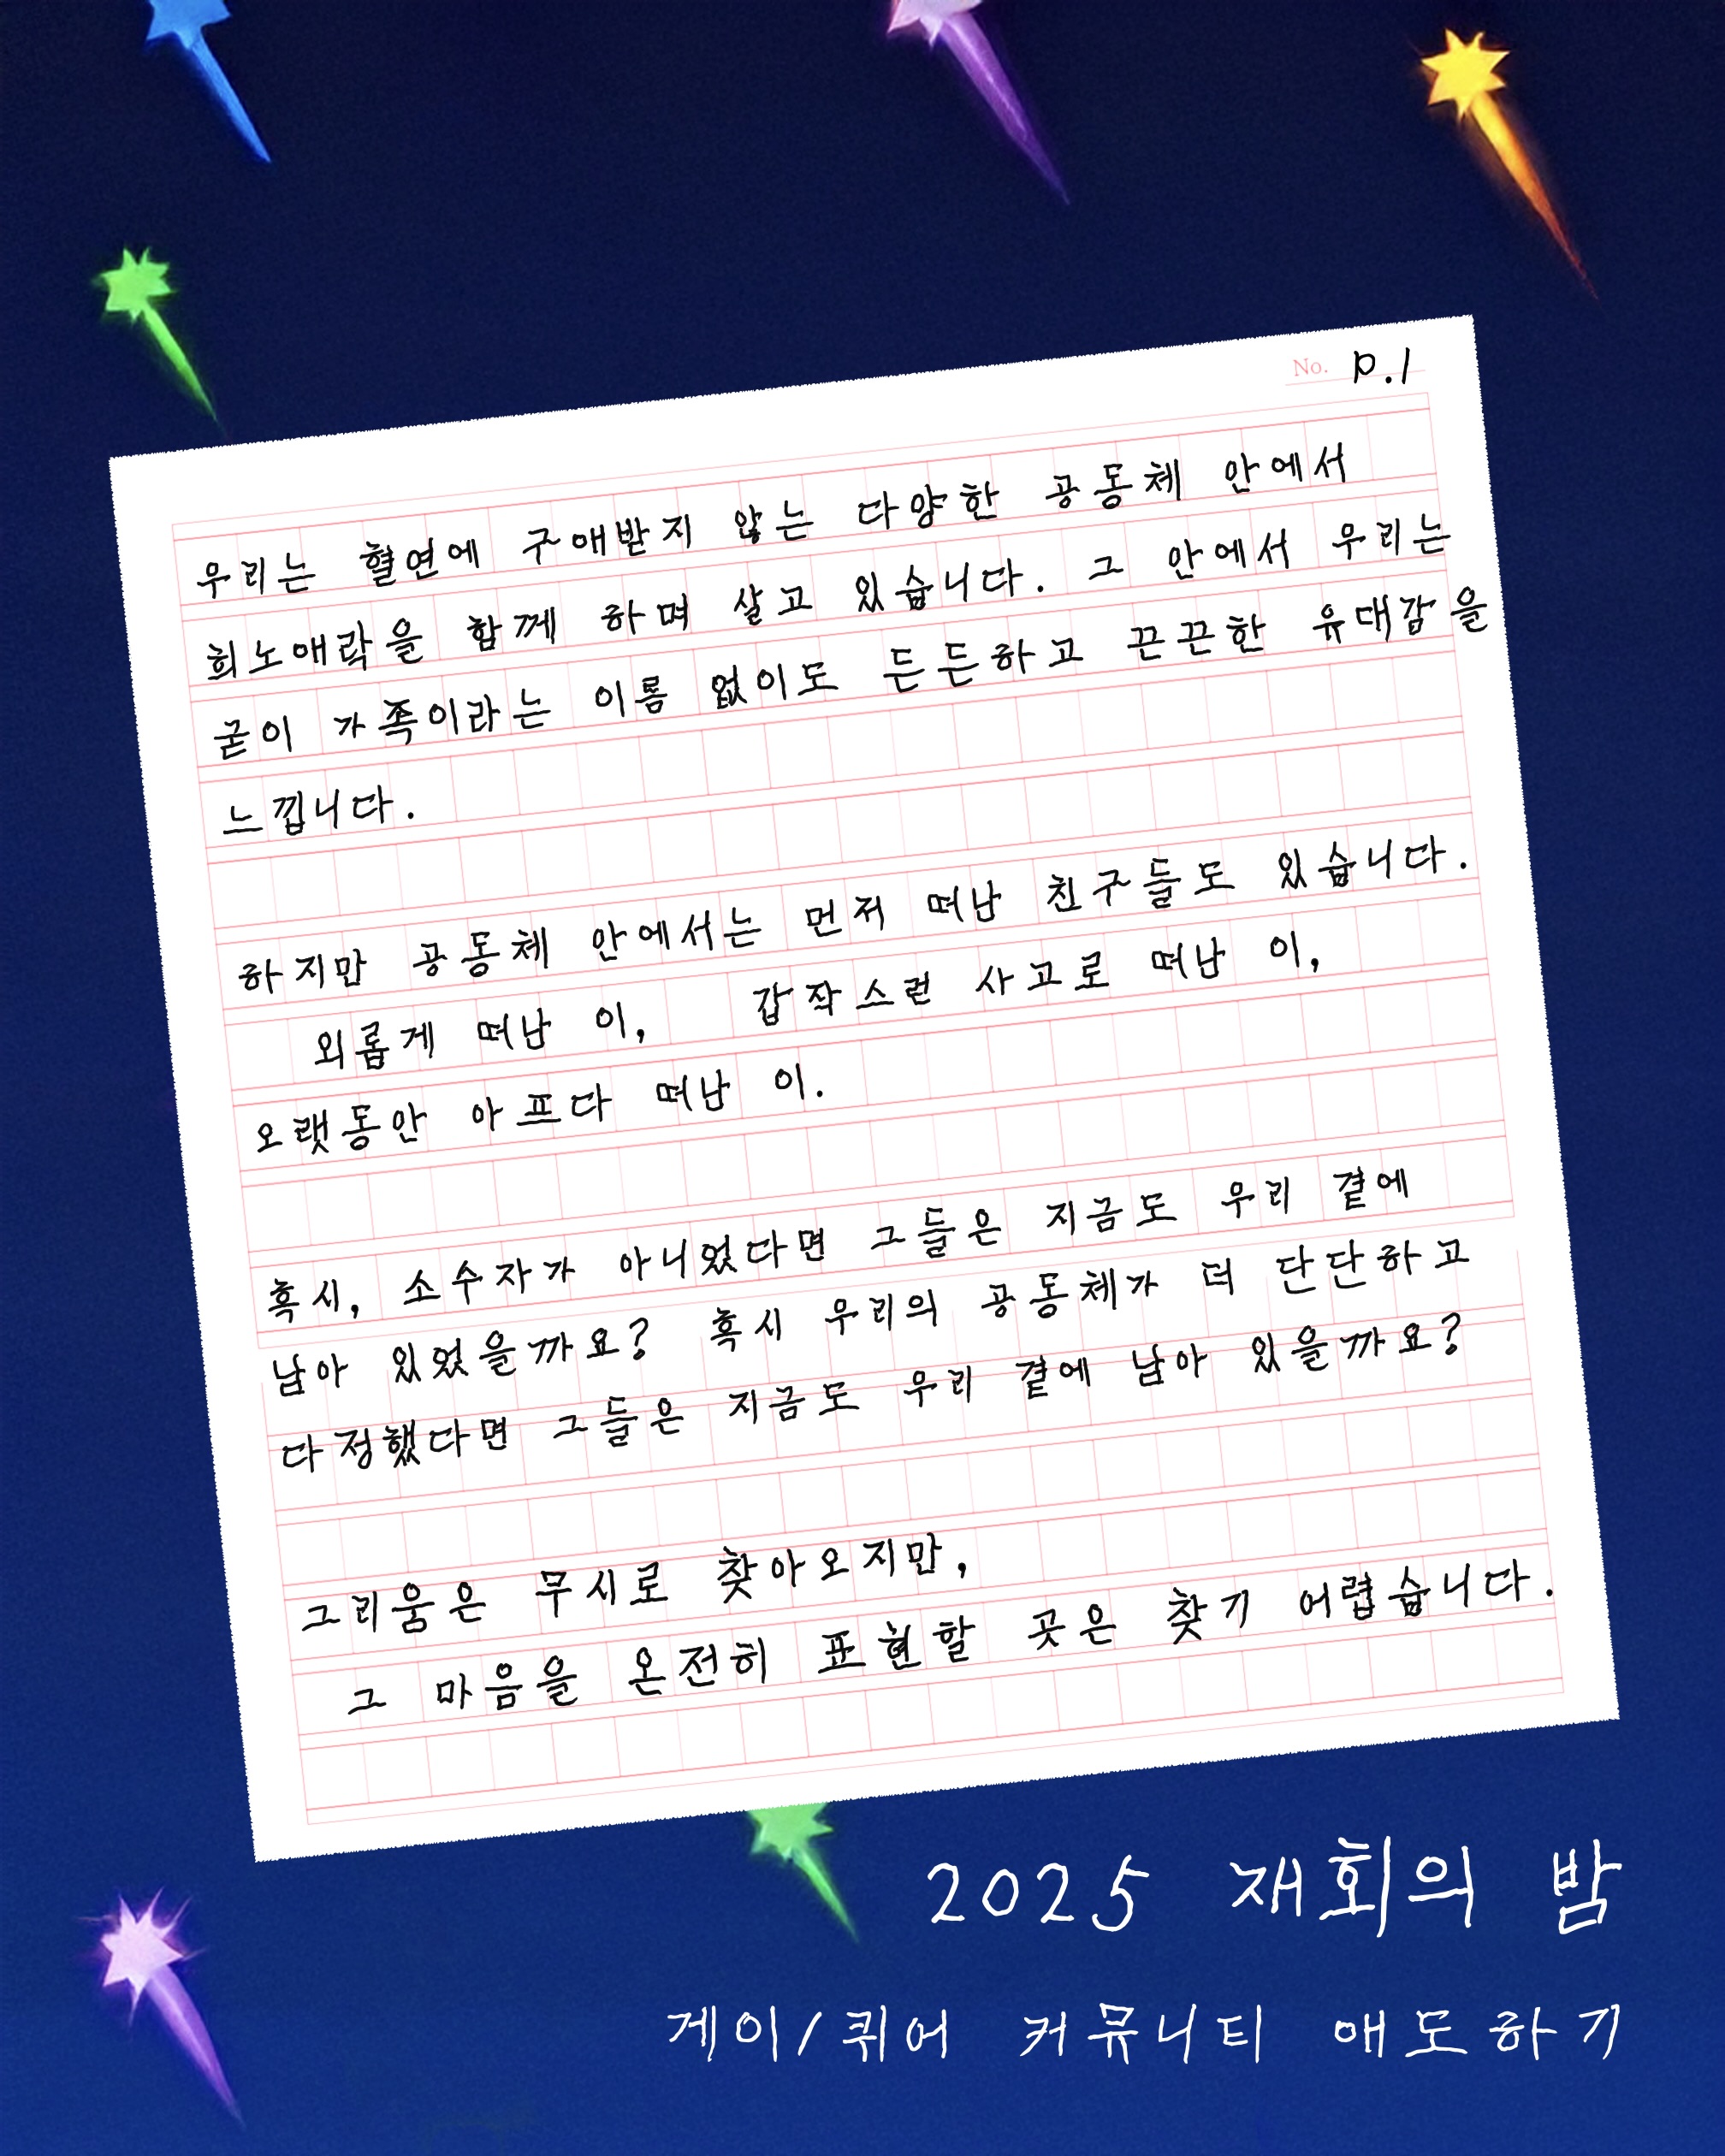 No. p.1
우리는 혈연에 구애받지 않는 다양한 공동체 안에서
희노애락을 함께 하며 살고 있습니다. 그 안에서 우리는
굳이 가족이라는 이름 없이도 든든하고 끈끈한 유대감을
느낍니다.
하지만 공동체 안에서는 먼저 떠난 친구들도 있습니다.
외롭게 떠난 이, 갑작스런 사고로 떠난 이,
오랫동안 아프다 떠난 이.
혹시, 소수자가 아니었다면 그들은 지금도 우리 곁에
남아 있었을까요? 혹시 우리의 공동체가 더 단단하고
다정했다면 그들은 지금도 우리 곁에 남아 있을까요?
그리움은 무시로 찾아오지만,
그 마음을 온전히 표현할 곳은 찾기 어렵습니다.
2025 재회의 밤
게이/퀴어 커뮤니티 애도하기